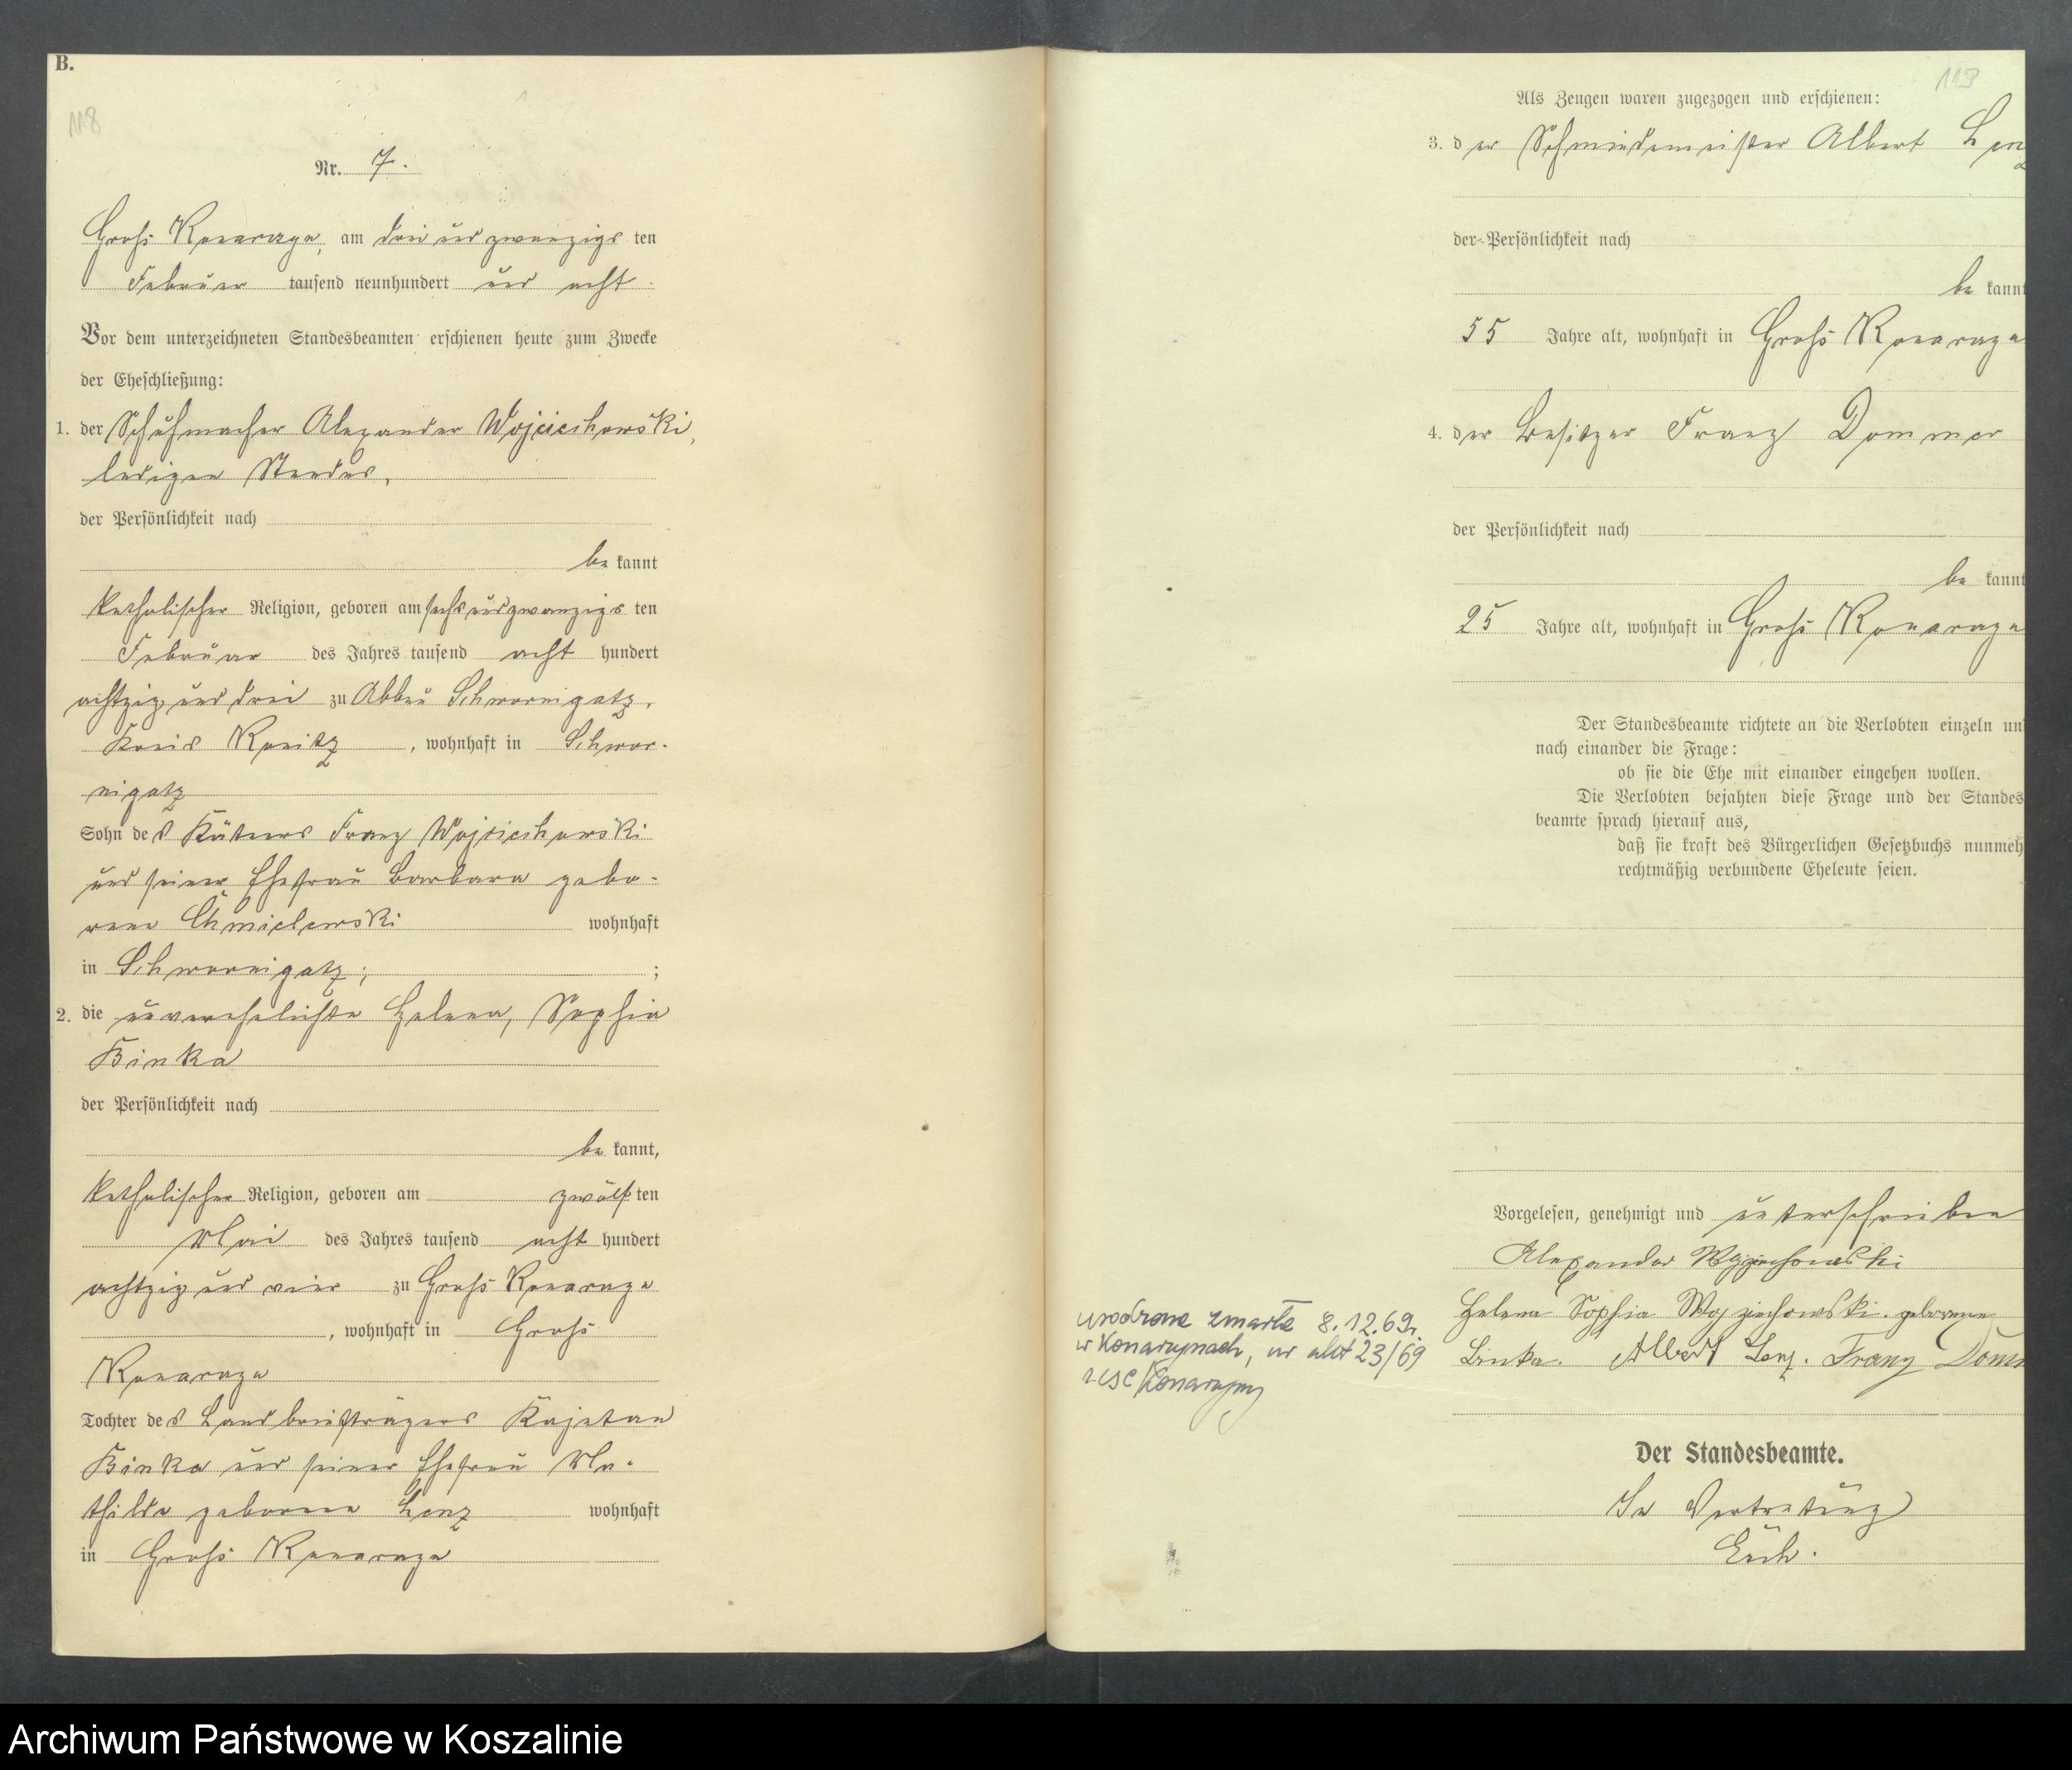 B.
118
Nr. 7.
Groß Konarczyn, am drei und zwanzigs ten
Februar tausend neunhundert und acht.
Vor dem unterzeichneten Standesbeamten erschienen heute zum Zwecke
der Eheschließung:
1. der Schuhmacher Alexander Wojciechowski,
ledigen Standes,
der Persönlichkeit nach
be kannt
katholischer Religion, geboren am sechs und zwanzigs ten
Februar des Jahres tausend acht hundert
achtzig und drei zu Abbau Schwornigatz,
Kreis Konitz, wohnhaft in Schwor-
nigatz
Sohn des Kätners Franz Wojciechowski
und seiner Ehefrau Barbara gebo-
rene Chmielewski wohnhaft
in Schwornigatz; ;
2. die unverehelichte Helena, Sophia
Binka
der Persönlichkeit nach
be kannt,
katholischer Religion, geboren am zwölf ten
Mai des Jahres tausend acht hundert
achtzig und vier zu Groß Konarczyn
, wohnhaft in Groß
Konarczyn
Tochter des Landbriefträgers Kajetan
Binka und seiner Ehefrau Ma-
thilde geborene Lenz wohnhaft
in Groß Konarczyn
119
Als Zeugen waren zugezogen und erschienen:
3. der Schmiedemeister Albert Lenz
der Persönlichkeit nach
be kannt
55 Jahre alt, wohnhaft in Groß Konarczyn
4. der Besitzer Franz Dommer
der Persönlichkeit nach
be kannt
25 Jahre alt, wohnhaft in Groß Konarczyn
Der Standesbeamte richtete an die Verlobten einzeln un
nach einander die Frage:
ob sie die Ehe mit einander eingehen wollen.
Die Verlobten bejahten diese Frage und der Standes
beamte sprach hierauf aus,
daß sie kraft des Bürgerlichen Gesetzbuchs nunmeh
rechtmäßig verbundene Eheleute seien.
Vorgelesen, genehmigt und unterschrieben
Alexander Wojciechowski
Helena Sophia Wojziechowski geborene
Binka. Albert Lenz. Franz Domm
w Konarzynach, nr akt 23/69
USC Konarzyny
zmarła 8.12.69r.
Der Standesbeamte.
In Vertretung
Archiwum Państwowe w Koszalinie